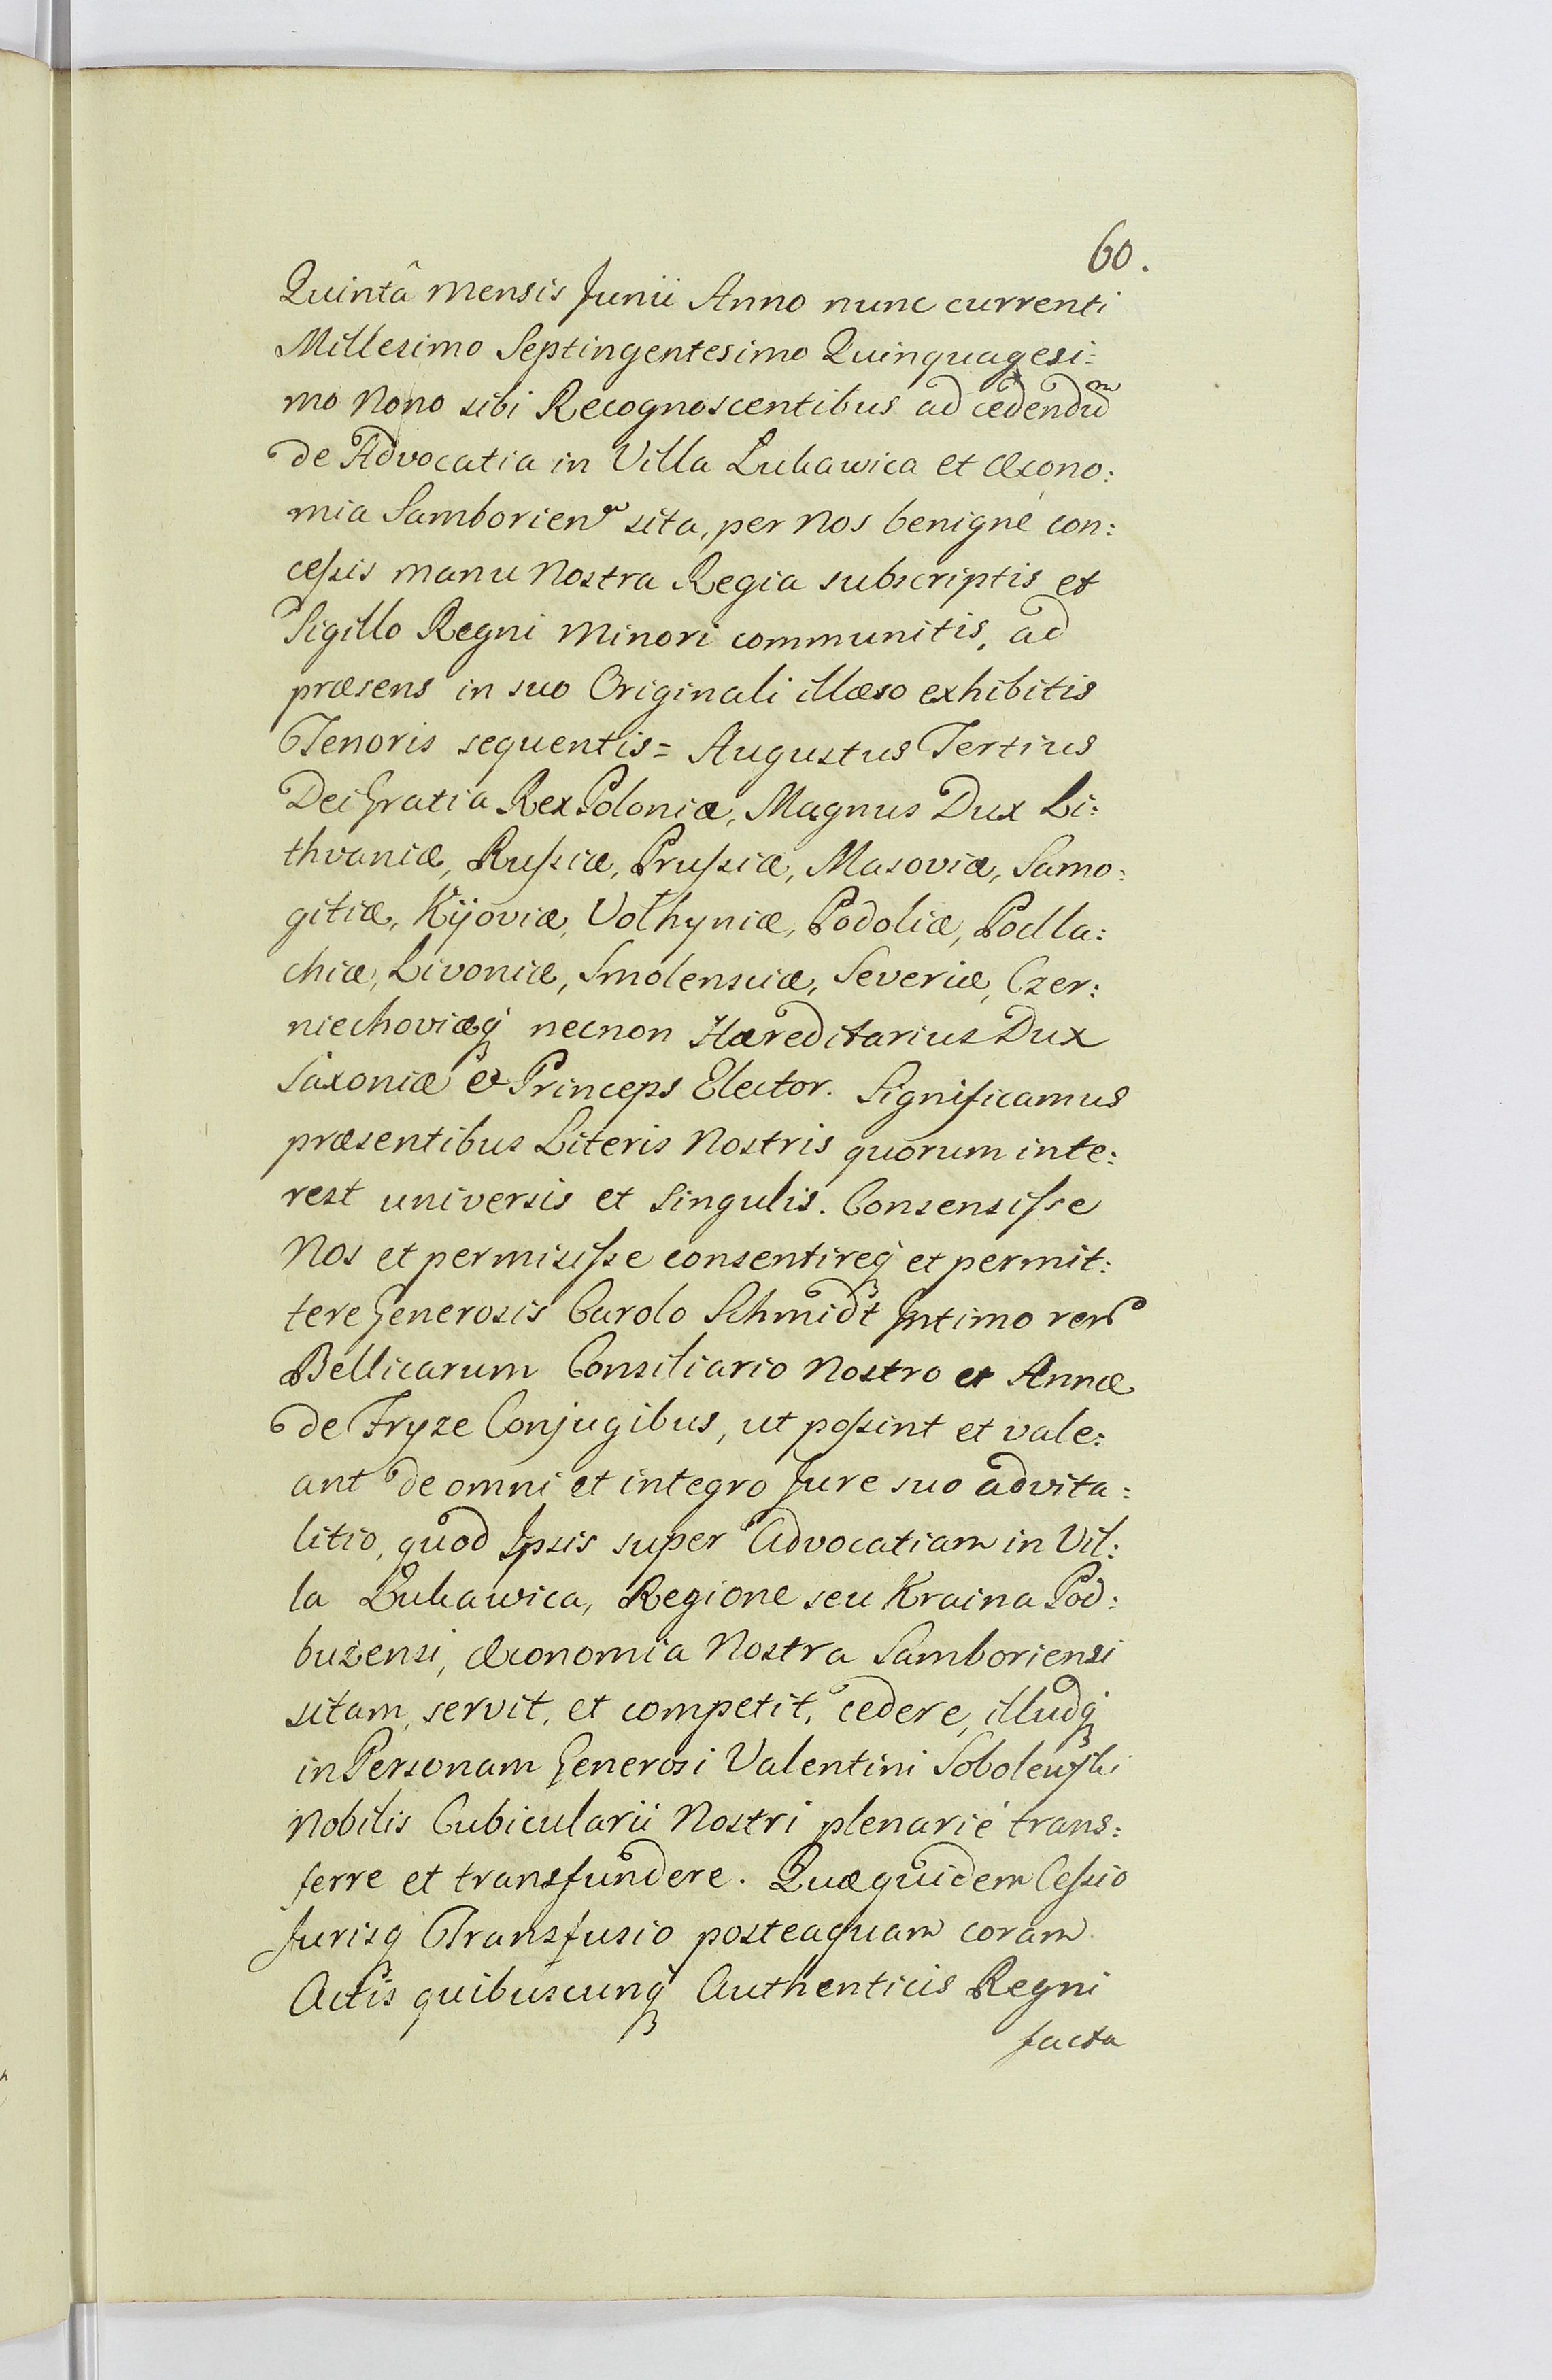 60.
Quintâ mensis Junii Anno nunc currenti
Millesimo Septingentesimo Quinquagesi:
mo Nono sibi Recognoscentibus ad cedendũ
de Advocatia in Villa Lukawica et Œcono:
mia Samborien sita, per Nos benignè con:
cessis manu Nostra Regia subscriptis et
Sigillo Regni Minori communitis, ad
præsens in suo Originali illæso exhibitis
Tenoris sequentis = Augustus Tertius
Dei Gratia Rex Poloniæ, Magnus Dux Li:
thvaniæ, Russiæ, Prussiæ, Masoviæ, Samo:
gitiæ, Kijoviæ, Volhyniæ, Podoliæ, Podla:
chiæ, Livoniæ, Smolensciæ, Severiæ, Czer:
niechoviæq̃ necnon Hæreditarius Dux
Saxoniæ et Princeps Elector. Significamus
præsentibus Literis Nostris quorum inte:
rest universis et singulis. Consensisse
Nos et permisisse consentireq̃ et permit:
tere Generosis Carolo Schmidt Intimo rerũ
Bellicarum Consiliario Nostro et Annæ
de Fryze Conjugibus, ut possint et vale:
ant de omni et integro Jure suo advita:
litio, quod Ipsis super Advocatiam in Vil:
la Lukawica, Regione seu Kraina Pod:
buzensi, Œconomia Nostra Samboriensi
sitam, servit, et competit, cedere, illudq̃
in Personam Generosi Valentini Sobolewski
Nobilis Cubicularii Nostri plenariè trans:
ferre et transfundere. Quæquidem Cessio
Jurisq̃ Transfusio posteaquam coram
Actis quibuscunq̃ Authenticis Regni
facta